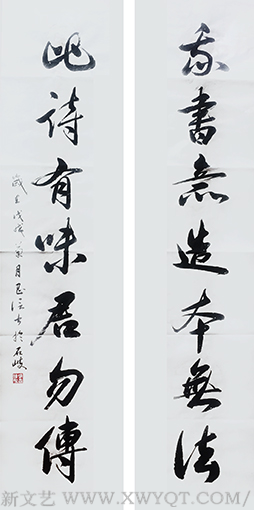 我書意造本無法
此詩有味君勿傳
歲在戊戌
月
書於石岐
新文艺 WWW.XWYQT.COM/